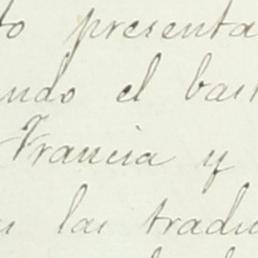 to presenta
ando el bas
Francia y
las tradi